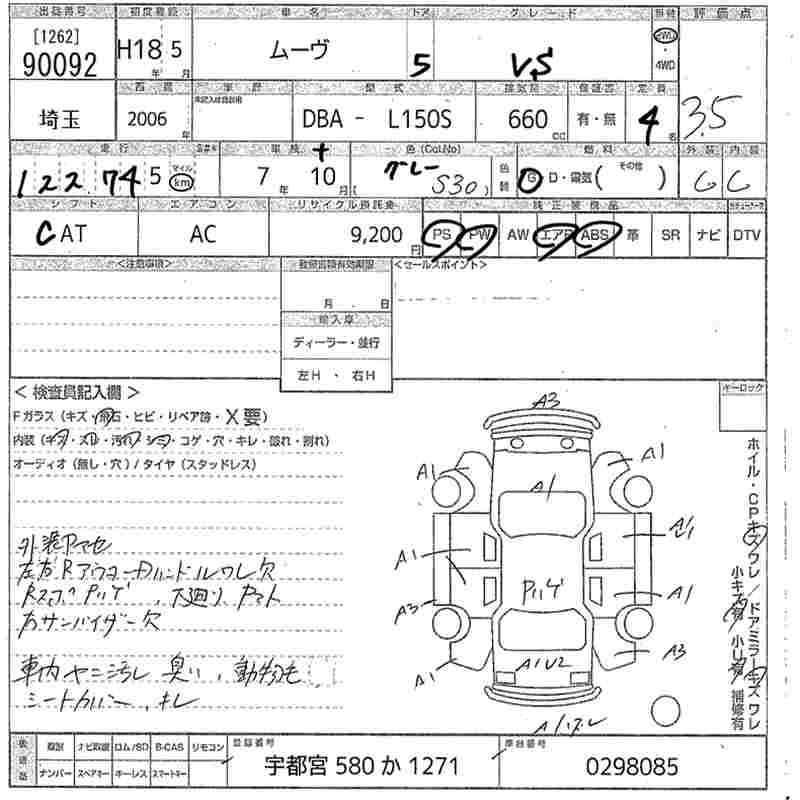 出品番号 初度登録 車名 ドア グレード 駆動 評価点
[1262]
90092 H18年 5月 ムーヴ 5 VS 2WD・4WD 3.5
西暦 車歴 型式 排気量 保証書 定員
埼玉 2006年 DBA - L150S 660cc 有・無 4名
走行 車検 色(Col.No) 燃料 外装 内装
122745 マイル km 7年 10月 グレー (S30) 色替 G・D・電気( その他 ) C C
シフト エアコン リサイクル預託金 純正装備品
CAT AC 9,200円 PS PW AW エアB ABS 革 SR ナビ DTV
<注意事項> <セールスポイント>
月 日
輸入車
ディーラー・並行
左H ・ 右H
< 検査員記入欄 > キーロック
Fガラス (キズ・飛石・ヒビ・リペア跡・X要)
内装 (キズ・スレ・汚れ・シミ・コゲ・穴・キレ・破れ・割れ)
オーディオ (無し・穴) / タイヤ (スタッドレス)
外装アセ
左右RアウターDハンドルワレ欠
下廻り
右サンバイザー欠
車内ヤニ汚レ 臭い、動物毛
シートカバー、キレ
A3
A1 A1
A1
A1
A1 A1
A3
A3
A1U2
A1
ホイル・CPキズワレ/ドアミラーキズワレ
小キズ有 小U有 補修有
後送品 取説 ナビ取説 ロム/SD B-CAS リモコン 登録番号 車台番号
ナンバー スペアキー キーレス スマートキー 宇都宮 580 か 1271 0298085